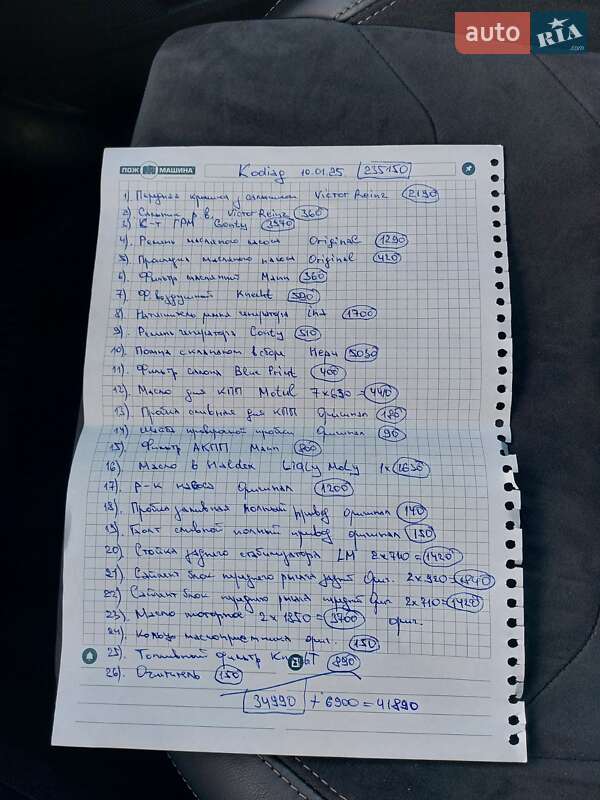 auto RIA .com
ПОЖ МАШИНА
Kodiag 10.01.25 235150
1) Передняя крышка с сальником Victor Reinz 2190
2) Сальник р.в. Victor Reinz 360
3) К-т ГРМ Conty 3940
4). Ремень масляного насоса Original 1290
5). Прокладка масляного насоса Original 420
6). Фильтр масляный Манн 360
7). Ф. воздушный Knecht
8). Натяжитель ремня генератора Ina 1700
9). Ремень генератора Conty 510
10). Помпа с клапаном в сборе Hepu 5050
11). Фильтр салона Blue Print 400
12). Масло для КПП Motul 7 x 630 = 4410
13). Пробка сливная для КПП оригинал 180
14). Шайба пробки оригинал 90
15). Фильтр АКПП Манн 800
16). Масло в Haldex Liqly Moly 1x 1650
17). Р-к насоса оригинал 1200
18). Пробка заливная полный привод оригинал 140
19). Болт сливной полный привод оригинал 150
20). Стойка заднего стабилизатора LM 2 x 710 = 1420
21). Сайлент блок переднего рычага задний ориг. 2 x 920 = 1840
22). Сайлент блок переднего рычага передний ориг 2 x 710 = 1420
23). Масло моторное 2 x 1850 = 3700 ориг.
24). Кольцо маслоприемника ориг. 150
25). Топливный фильтр Knecht 890
26). Очиститель 150
34990 + 6900 = 41890